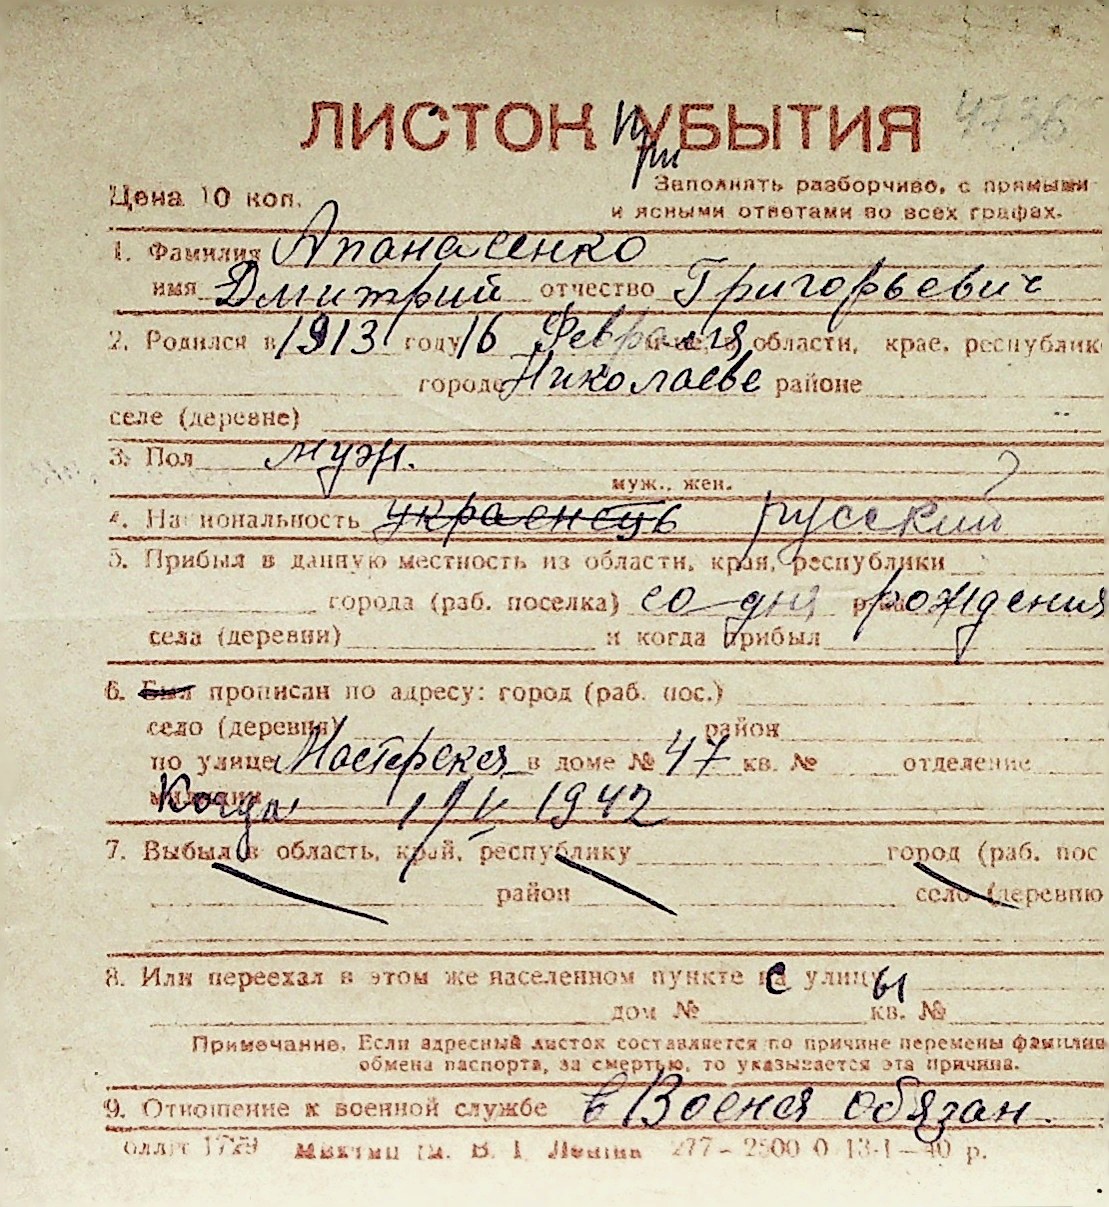 ЛИСТОК УБЫТИЯ При 4736
Цена 10 коп. Заполнять разборчиво, с прямыми
и ясными ответами во всех графах.
1. Фамилия Апанасенко
имя Дмитрий отчество Григорьевич
2. Родился в 1913 году 16 Февраля области, крае, республик
городе Николаеве районе
селе (деревне)
3. Пол муж.
муж., жен.
4. Национальность украенець русский
5. Прибыл в данную местность из области, края, республики
города (раб. поселка) со дня рождения
села (деревни) и когда прибыл
6. Был прописан по адресу: город (раб. пос.)
село (деревня) район
по улице Мастерская в доме № 47 кв. № отделение
милиции Когда 1/V 1942
7. Выбыл в область, край, республику город (раб. пос
район село (деревню
8. Или переехал в этом же населенном пункте с улицы
дом № кв. №
Примечание. Если адресный листок составляется по причине перемены фамилии
обмена паспорта, за смертью, то указывается эта причина.
9. Отношение к военной службе в Военя обязан.
В. І. Леніна 277-2500 0 13-1-40 р.